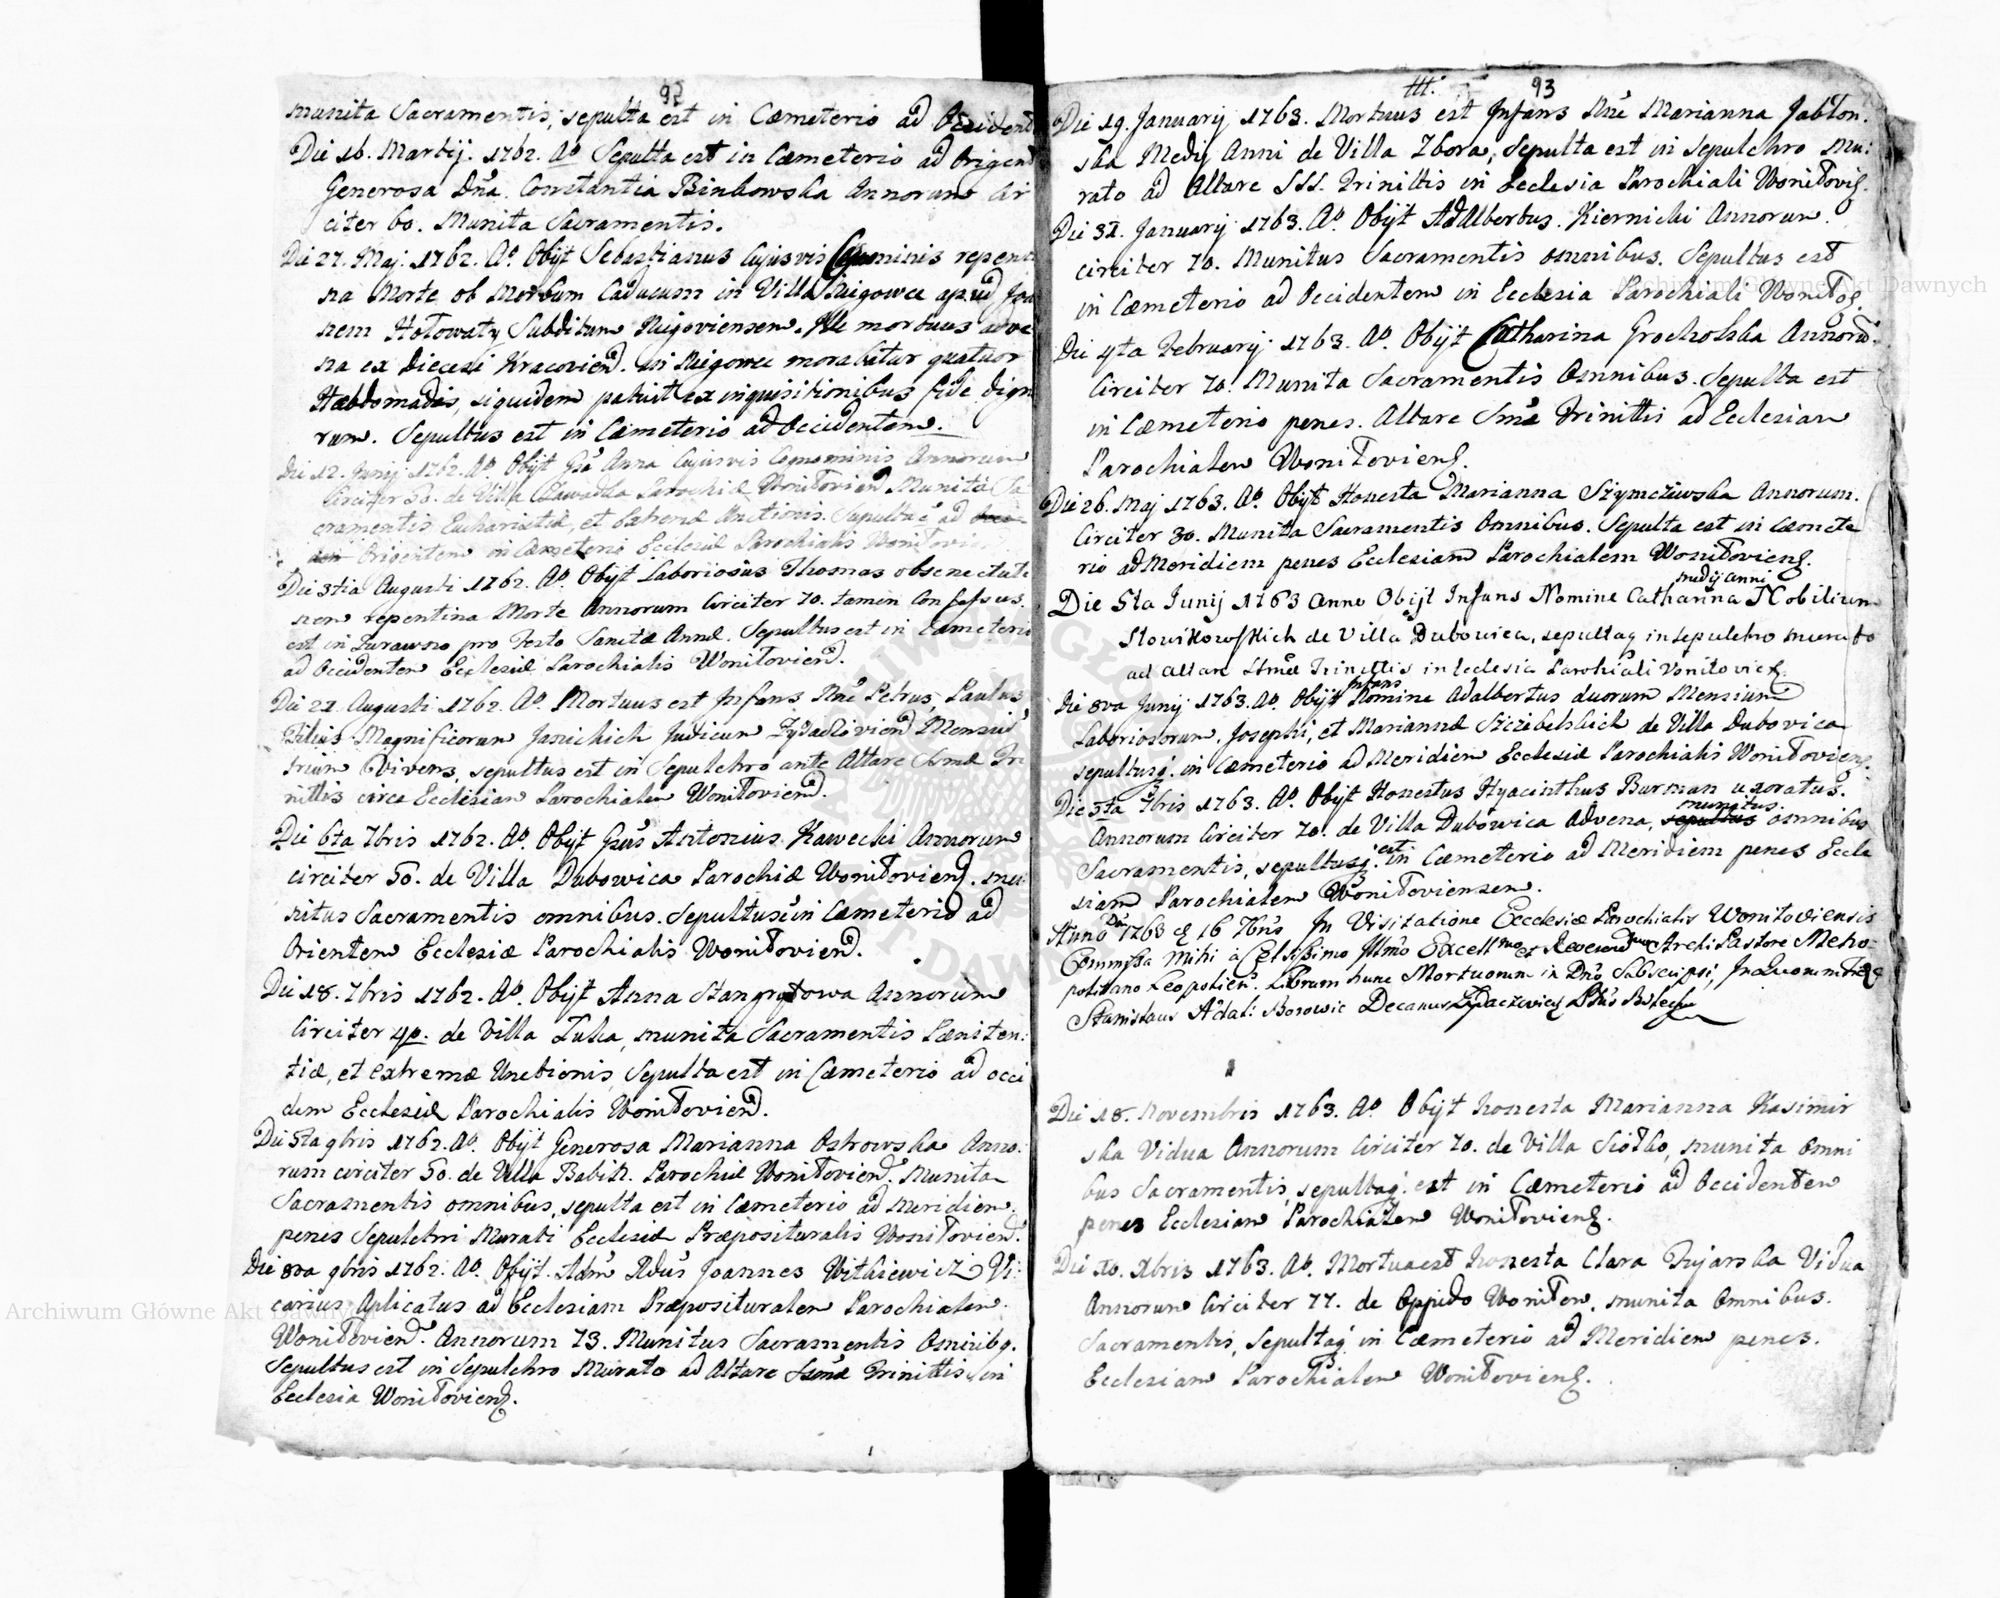 92
munita Sacramentis, sepulta est in Cæmeterio ad Occident
Die 16. Martij. 1762. Aº Sepulta est in Cæmeterio ad Origent
Generosa Dña. Constantia Binkowska Annorum Cir
citer 60. Munita Sacramentis.
Die 27. Maj. 1762. Aº. Obijt Sebastianus Cujusvis Cognominis repen
na Morte ob Morbum Caducum in Villa Nigowce apud Joa
nem Hołowaty Subditum Nigoviensem. Ille mortuus adve
na ex Diecesi Kracovien. in Nigowce morabitur quatuor
Hæbdomadas, siquidem patuit ex inquisitionibus fide dign
rum. Sepultus est in Cæmeterio ad Occidentem.
Die 12. Junij 1762. Aº. Obijt Gsa Anna Cujusvis Cognominis Annorum
Circiter 50. de Villa Zawadka Parochiæ Woniłovien Munita Sa
cramentis Eucharistiæ, et Extremæ Unctionis. Sepulta ẽ ad
Origentem in Cæmeterio Ecclesiæ Parochialis Woniłovien
Die 3tia Augusti 1762. Aº. Obijt Laboriosus Thomas ob senectute
nem repentina Morte Annorum Circiter 70. tamen Confessus
est in Zurawno pro Festo Sanctæ Annæ. Sepultus est in Cæmeterio
ad Occidentem Ecclesiæ Parochialis Woniłovien.
Die 21 Augusti 1762. Aº. Mortuus est Infans Nñe Petrus, Paulus
Filius Magnificorum Janickich Judicum Zydaczovien Mensiũ
trium Vivens, sepultus est in Sepulchro ante Altare Ssmæ Tri
nittis circa Ecclesiam Parochialem Woniłovien.
Die 6ta 7bris 1762. Aº. Obijt Gsus Antonius Kawecki Annorum
circiter 50. de Villa Dubowica Parochiæ Woniłovien. mu
nitus Sacramentis omnibus. Sepultus ẽ in Cæmeterio ad
Orientem Ecclesiæ Parochialis Woniłovien.
Die 18. 7bris 1762. Aº. Obijt Anna Stangrytowa Annorum
Circiter 40. de Villa Tuka, munita Sacramentis Pæniten:
tiæ, et extremæ Unctionis, Sepulta est in Cæmeterio ad occi
dem Ecclesiæ Parochialis Woniłovien.
Die 5ta 9bris 1762. Aº. Obijt Generosa Marianna Ostrowska Anno:
rum circiter 50. de Villa Babin. Parochiæ Woniłovien. Munita
Sacramentis omnibus, sepulta est in Cæmeterio ad Meridiem
penes Sepulchri Murati Ecclesiæ Præposituralis Woniłovien.
Die 8va 9bris 1762. Aº. Obijt. Adm̃ Rdus Joannes Witkiewicz Vi:
carius Aplicatus ad Ecclesiam Præposituralem Parochialem
Woniłovien. Annorum 73. Munitus Sacramentis Omnibq.
Sepultus est in Sepulchro Murato ad Altare Ssmæ Trinittis in
Ecclesia Woniłovien.
III. 93
Die 19. Januarij 1763. Mortuus est Infans Nñe Marianna Jabłon:
ska Medij Anni de Villa Zbora, Sepulta est in Sepulchro Mu:
rato ad Altare SSS. Trinittis in Ecclesia Parochiali Woniłovien.
Die 31. Januarij 1763. Aº. Obijt AdAlbertus. Kiernicki Annorum
circiter 70. Munitus Sacramentis omnibus. Sepultus est
in Cæmeterio ad Occidentem in Ecclesia Parochiali Woniłog.
Die 4ta Februarij 1763. Aº. Obijt Catharina Grocholska Annorũ
Circiter 70. Munita Sacramentis Omnibus. Sepulta est
in Cæmeterio penes. Altare Smæ Trinittis ad Ecclesiam
Parochialem Woniłovien.
Die 26. Maj 1763. Aº. Obijt Honesta Marianna Szymczewska Annorum.
Circiter 30. Munita Sacramentis Omnibus. Sepulta est in Cæmete
rio ad Meridiem penes Ecclesiam Parochialem Woniłovien.
medij anni
Die 5ta Junij 1763 Anno Obijt Infans Nomine Catharina Nobilium
Słowikowskich de Villa Dubowica, sepultaq in sepulchro murato
ad altare Ssmæ Trinittis in Ecclesia Parochiali Woniłovien.
Infans
Die 8va Junij 1763. Aº. Obijt Nomine Adalbertus duorum Mensium
Laboriosorum. Josephi, et Mariannæ Szczebelskich de Villa Dubovica
sepultusq. in Cæmeterio ad Meridiem Ecclesiæ Parochialis Woniłovien.
Die 5ta 7bris 1763. Aº. Obijt Honestus Hyacinthus Burman uxoratus.
munitus
Annorum Circiter 70. de Villa Dubowica Advena, sepultus omnibus
est
Sacramentis, sepultusq. in Cæmeterio ad Meridiem penes Eccle
siam Parochialem Woniłoviensem.
Anno Dni 1763 16 7bris In Visitatione Ecclesiæ Parochialis Woniłoviensis
Commissa Mihi à Celsissimo Illmo Excellmo et Reverendmo Archi Pastore Metro
politano Leopolien. Librum hunc Mortuorum in Dno Subscripsi, In Quorum Fidem
Stanislaus Adal: Borowic Decanus
Die 18. Novembris 1763. Aº Obijt honesta Marianna Kasimir
ska Vidua Annorum Circiter 70. de Villa Siółko, munita omni
bus Sacramentis, sepultaq. est in Cæmeterio ad Occidentem
penes Ecclesiam Parochialem Woniłovien.
Die 10. Xbris 1763. Aº. Mortua est honesta Clara Kujarska Vidua
Annorum Circiter 77. de Oppido Woniłow, munita Omnibus.
Sacramentis, Sepultaq in Cæmeterio ad Meridiem penes.
Ecclesiam Parochialem Woniłovien.
Archiwum Główne Akt Dawnych
Archiwum Główne Akt Dawnych